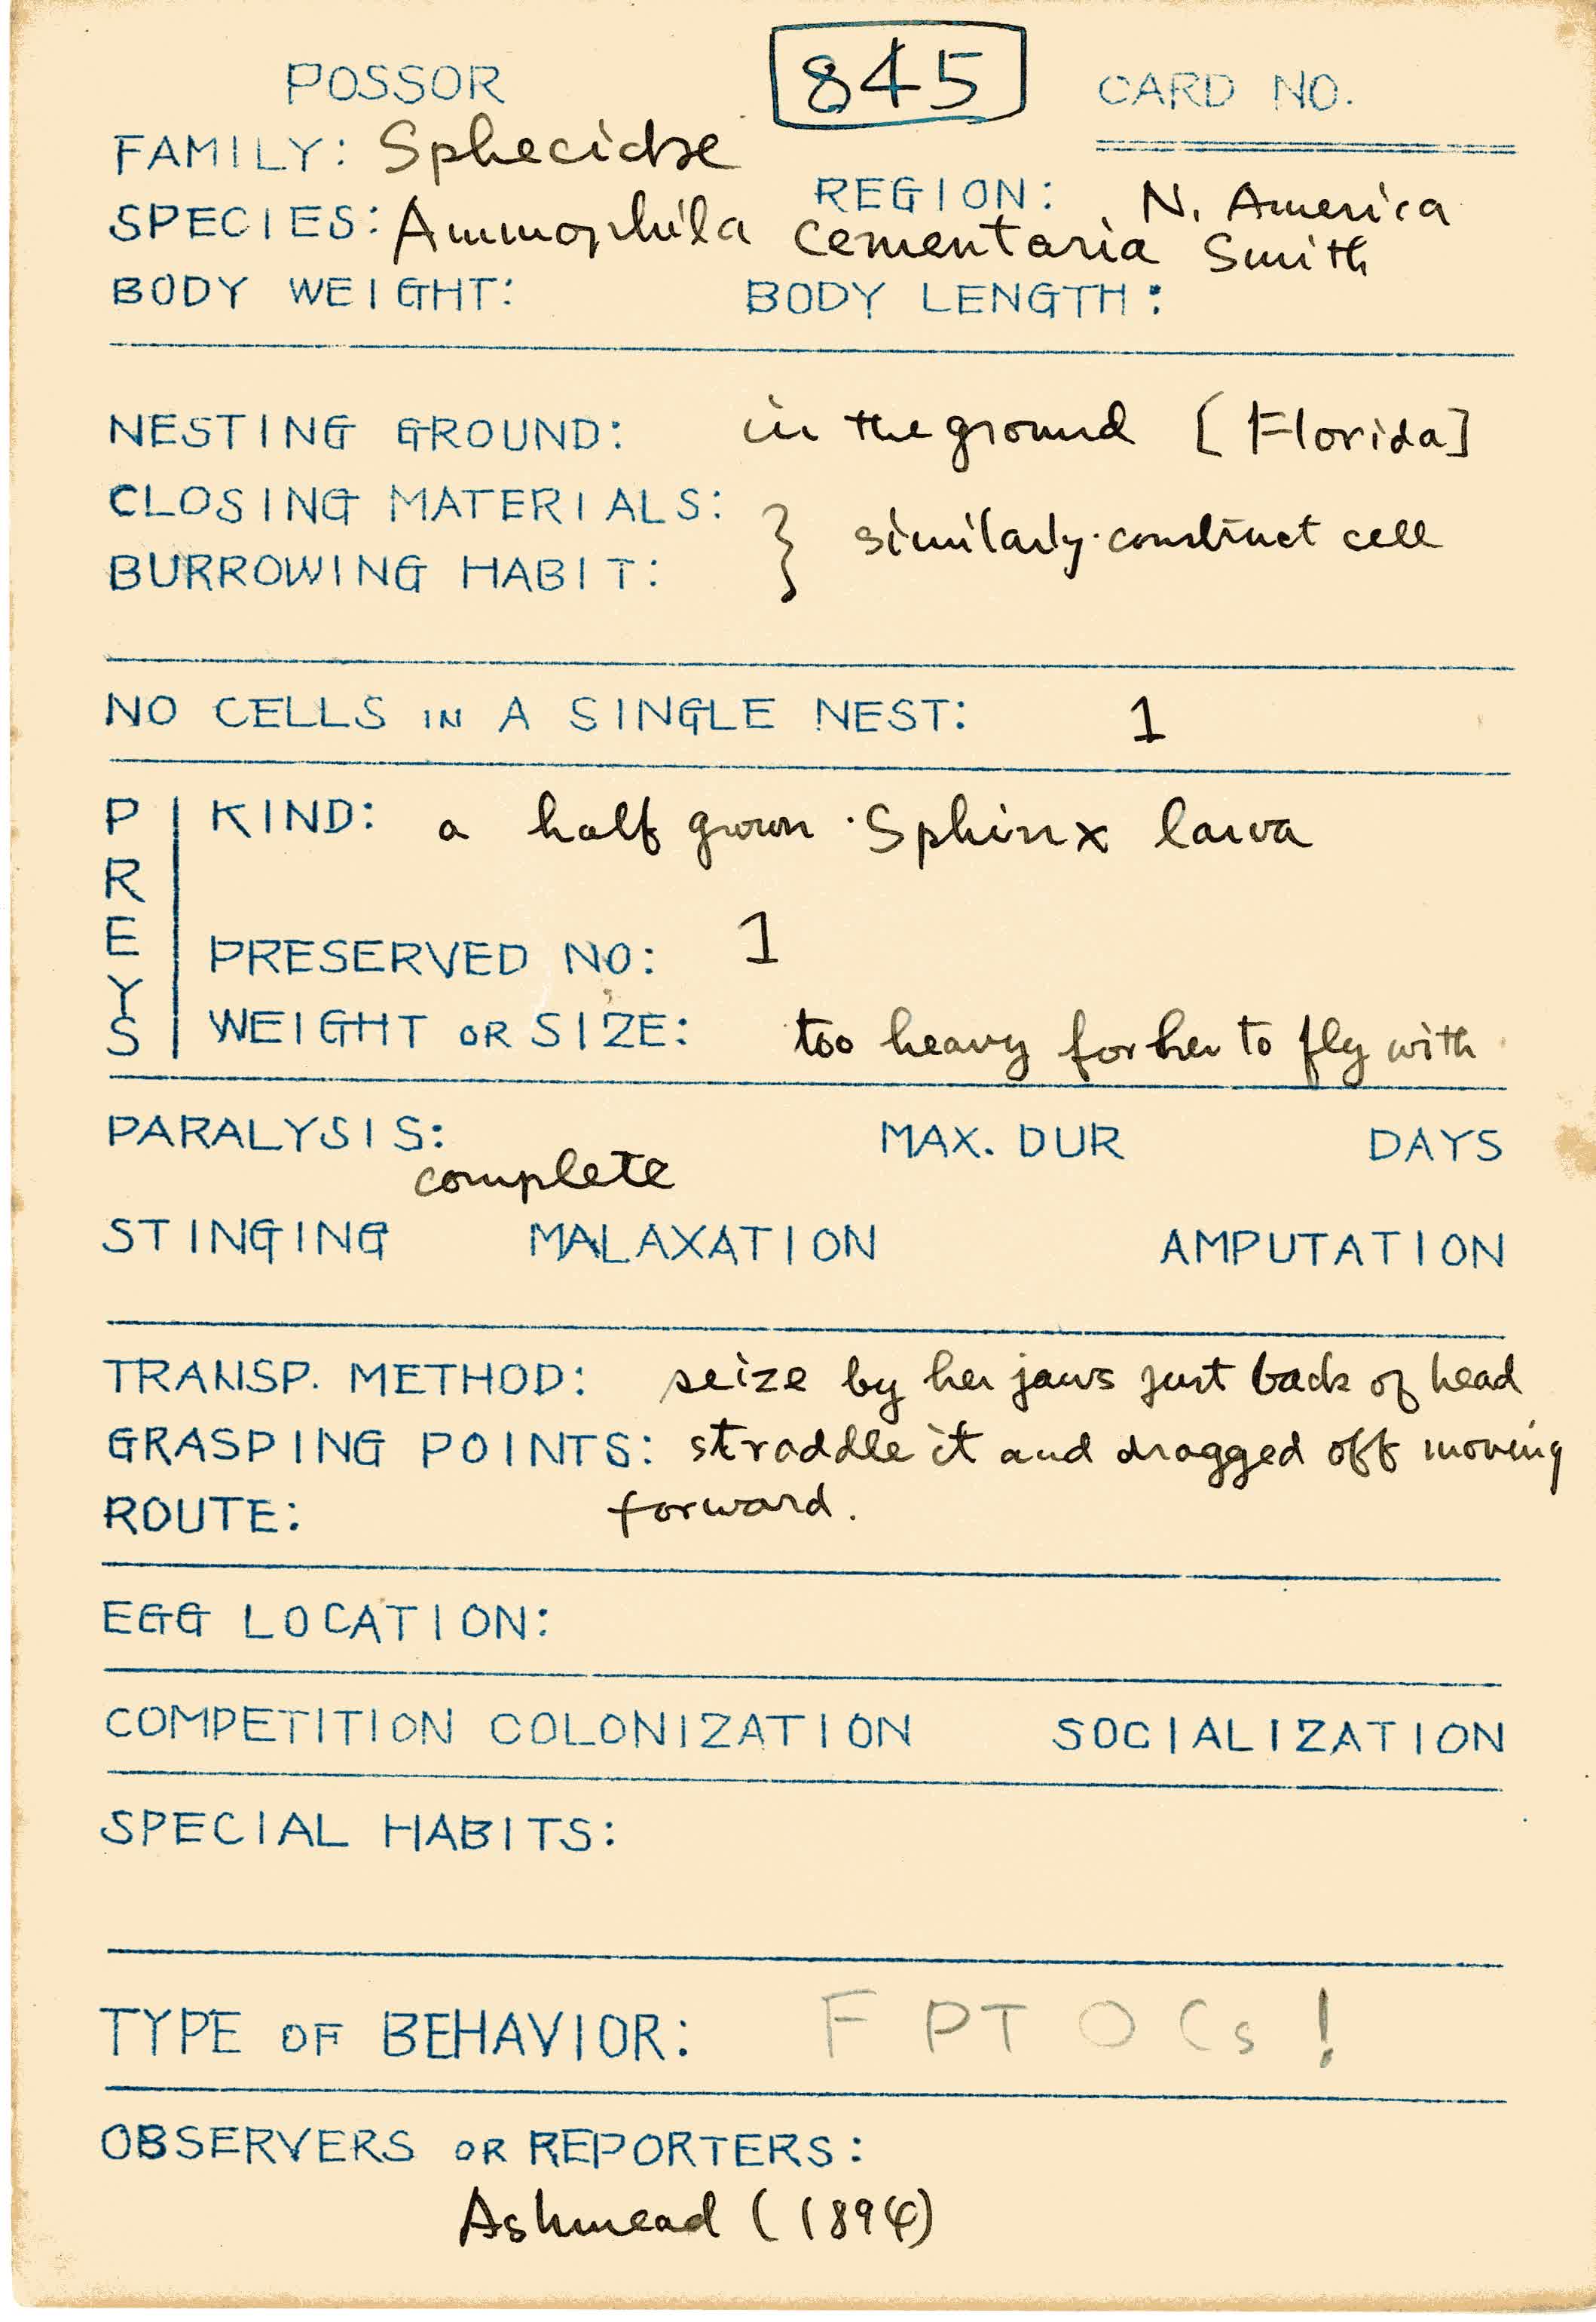 POSSOR 845 CARD NO.
FAMILY: Sphecidae
REGION: N. America
SPECIES: Ammophila cementaria Smith
BODY WEIGHT: BODY LENGTH:
NESTING GROUND: in the ground [Florida]
CLOSING MATERIALS:
BURROWING HABIT: } similarly construct cell
NO CELLS IN A SINGLE NEST: 1
PREYS
KIND: a half grown Sphinx larva
PRESERVED NO: 1
WEIGHT OR SIZE: too heavy for her to fly with
PARALYSIS: MAX. DUR DAYS
complete
STINGING MALAXATION AMPUTATION
TRANSP. METHOD: seize by her jaws just back of head
GRASPING POINTS: straddle it and dragged off moving
ROUTE: forward.
EGG LOCATION:
COMPETITION COLONIZATION SOCIALIZATION
SPECIAL HABITS:
TYPE OF BEHAVIOR: F PT O Cs !
OBSERVERS OR REPORTERS:
Ashmead (1894)